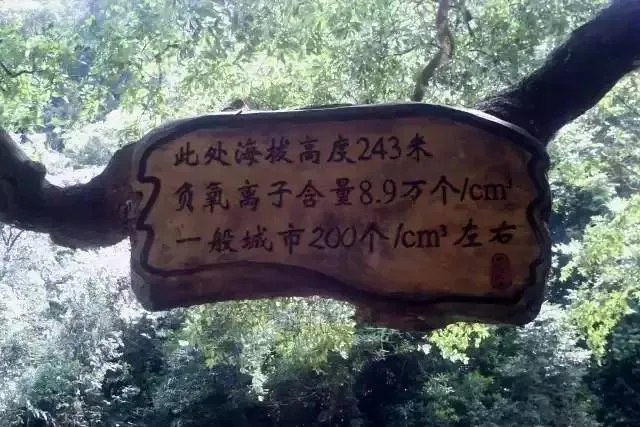 此处海拔高度243米
负氧离子含量8.9万个/cm³
一般城市200个/cm³左右